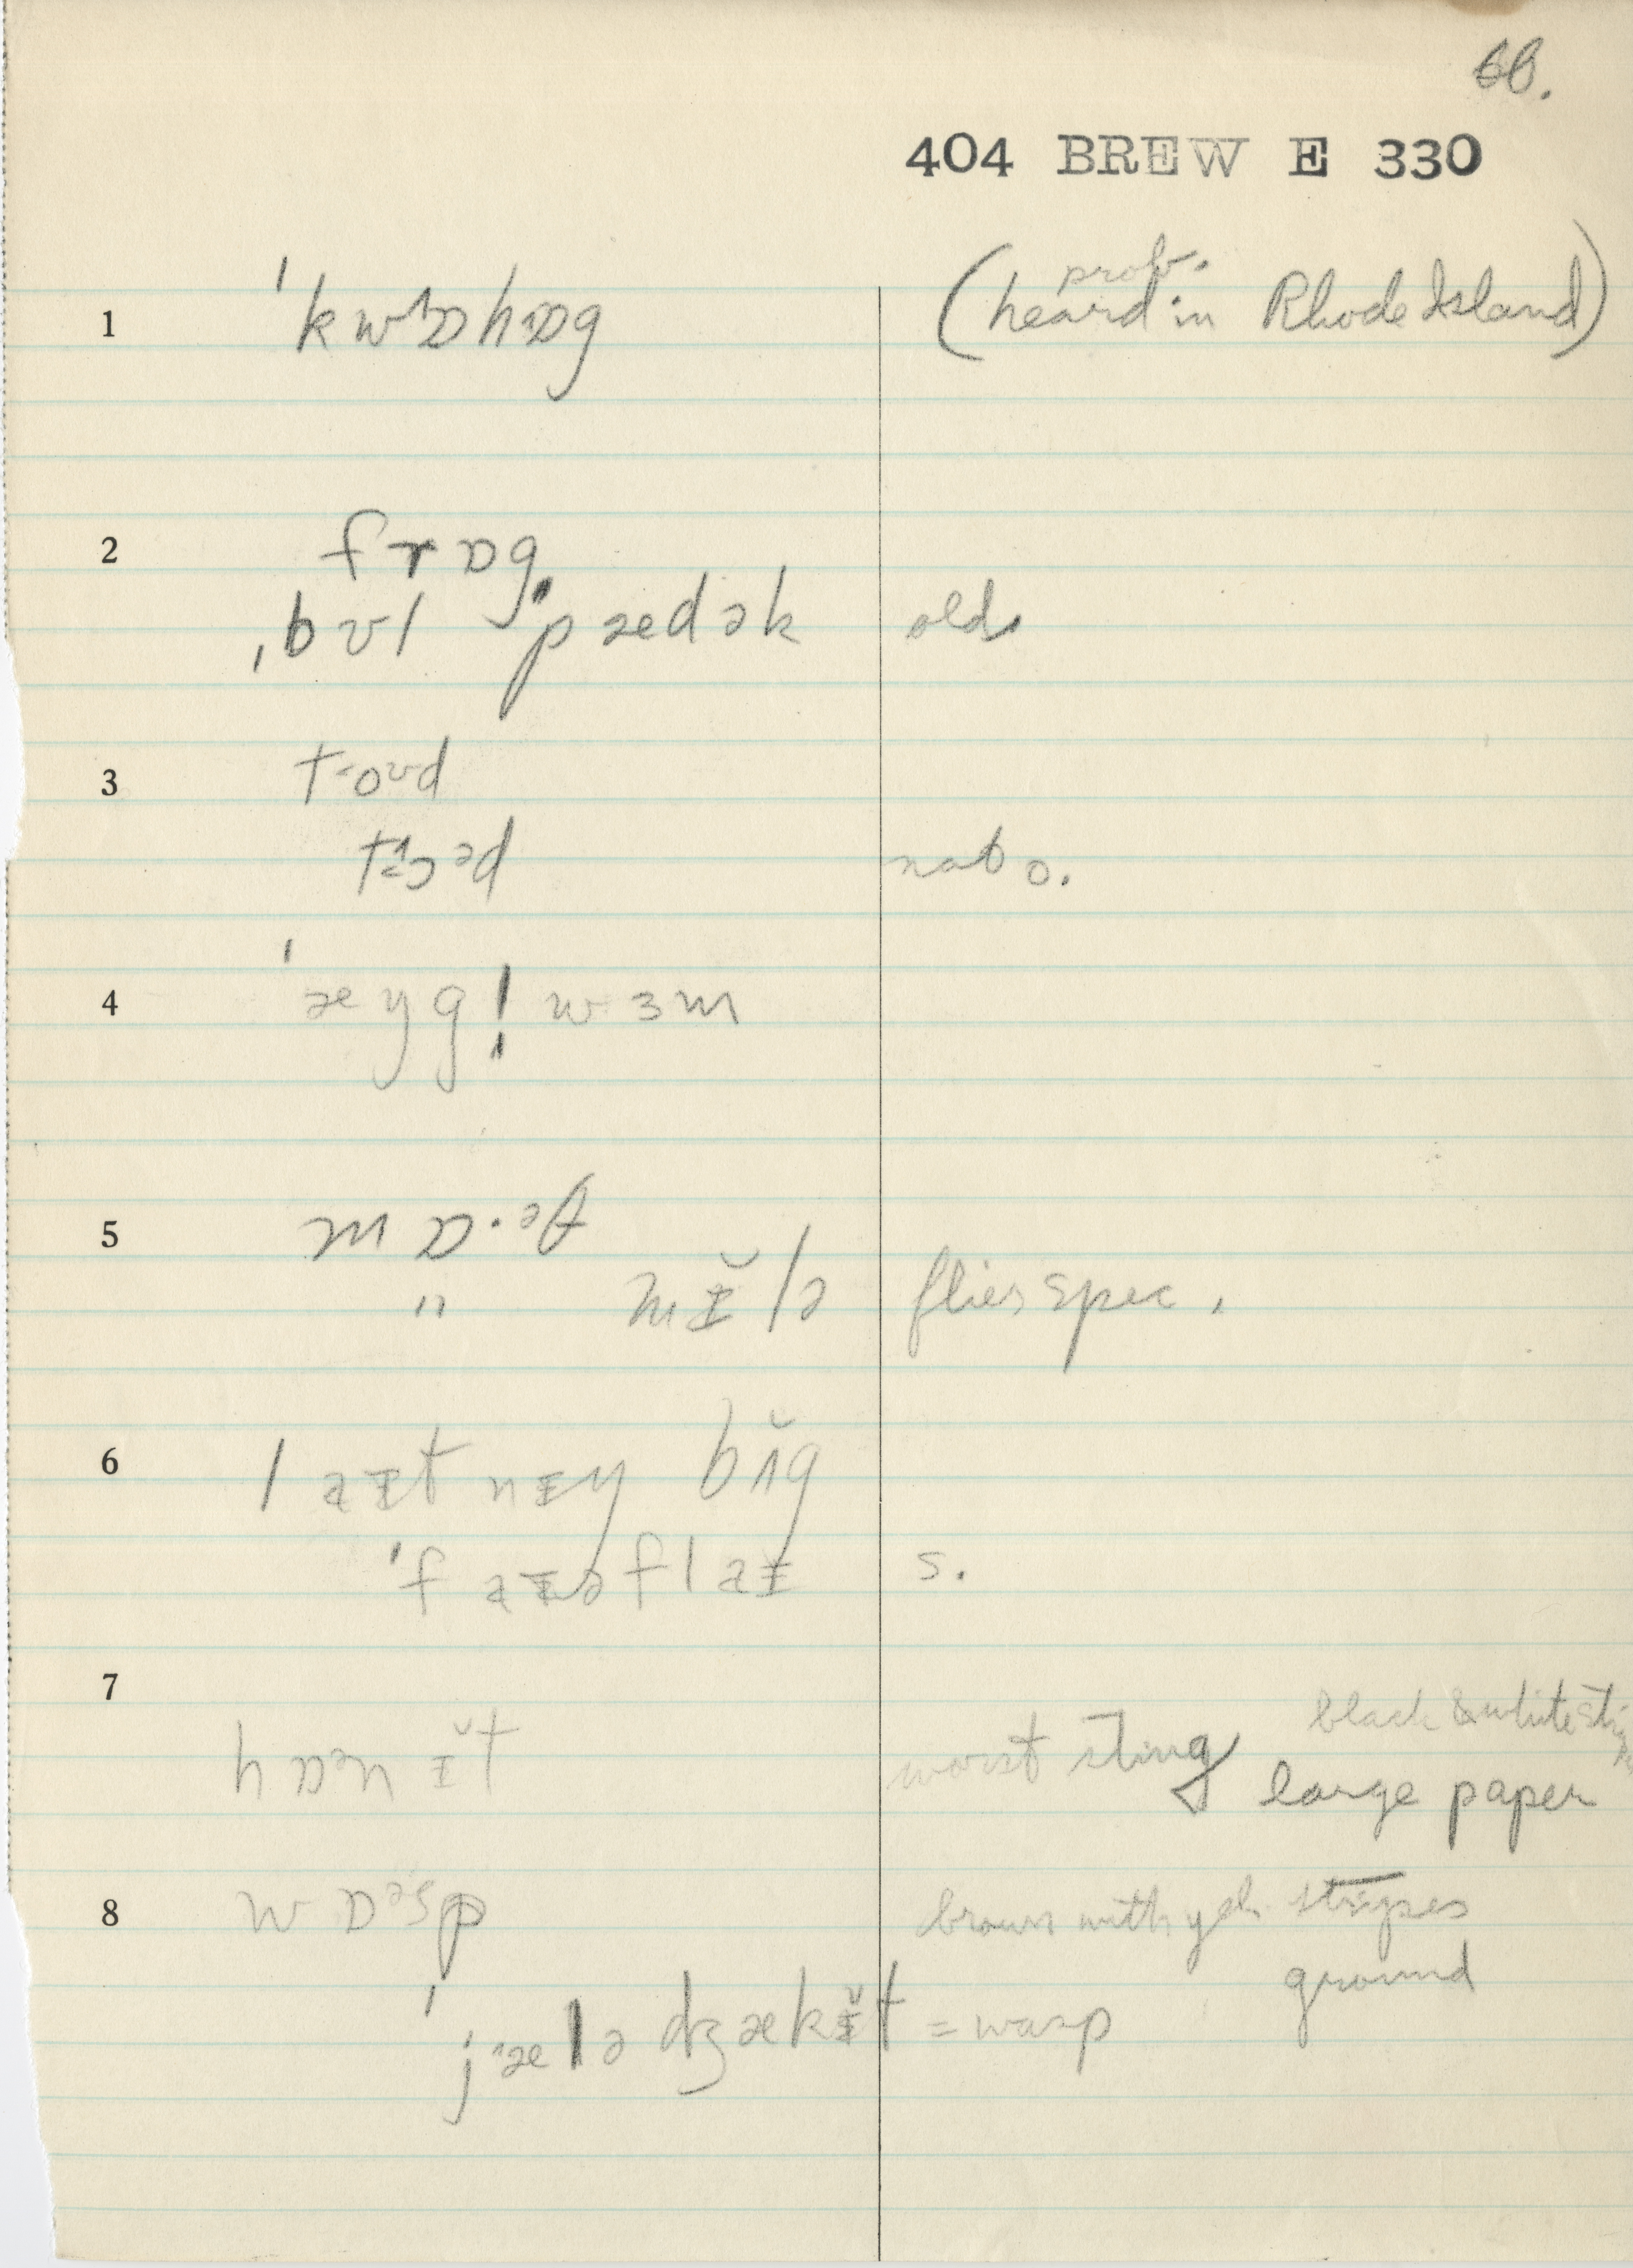 68.
404 BREW E 330
1 ˈkwɒhɒg (prob. heard in Rhode Island)
2 frɒg
ˌbʊl ˈpædək olds
3 toʊd
tɔəd nat o.
4 ˈæŋgl̩wɜm
5 mɒ·əθ
" mɪ̆lə flies spec.
6 laɪtnɪŋ bʌ̆g
ˈfaɪəflaɪ s.
7 black & white
hɒənɪ̆t worst sting large paper
8 wɒəsp brown with yel. stripes
ground
ˈjælədʒækɪ̆t = wasp